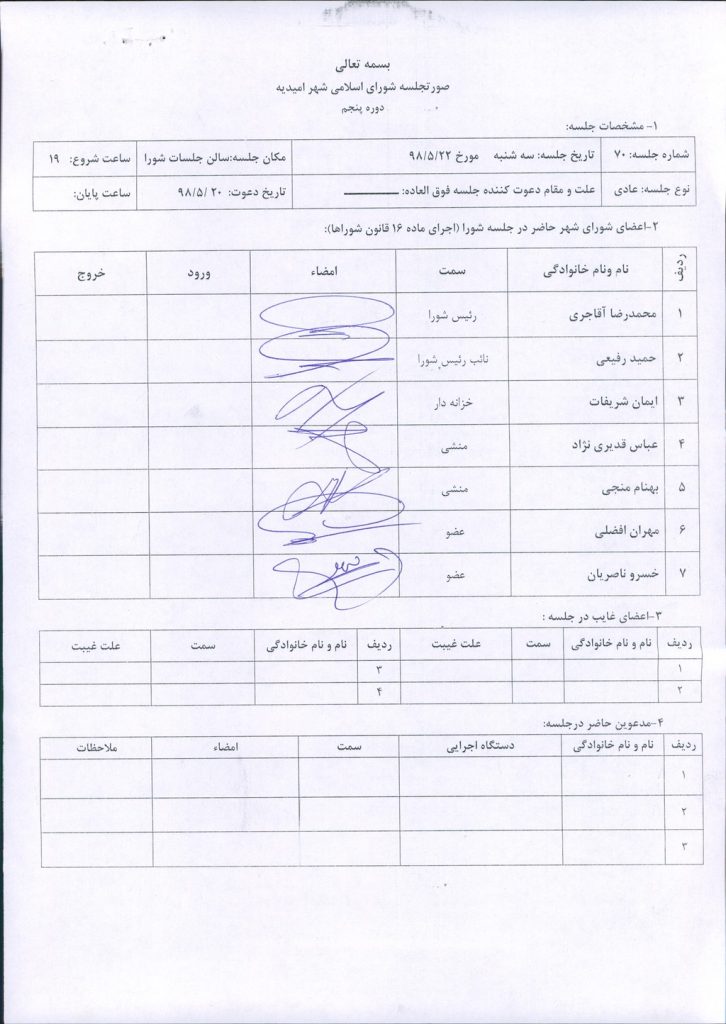 بسمه تعالی
صورتجلسه شورای اسلامی شهر امیدیه
دوره پنجم
۱- مشخصات جلسه:
شماره جلسه: ۷۰ تاریخ جلسه: سه شنبه مورخ ۹۸/۵/۲۲ مکان جلسه:سالن جلسات شورا ساعت شروع: ۱۹
نوع جلسه: عادی علت و مقام دعوت کننده جلسه فوق العاده: ـــــــــــــ تاریخ دعوت: ۹۸/۵/۲۰ ساعت پایان:
۲-اعضای شورای شهر حاضر در جلسه شورا (اجرای ماده ۱۶ قانون شوراها):
ردیف نام ونام خانوادگی سمت امضاء ورود خروج
۱ محمدرضا آقاجری رئیس شورا
۲ حمید رفیعی نائب رئیس شورا
۳ ایمان شریفات خزانه دار
۴ عباس قدیری نژاد منشی
۵ بهنام منجی منشی
۶ مهران افضلی عضو
۷ خسرو ناصریان عضو
۳-اعضای غایب در جلسه :
ردیف نام و نام خانوادگی سمت علت غیبت ردیف نام و نام خانوادگی سمت علت غیبت
۱ ۳
۲ ۴
۴-مدعوین حاضر درجلسه:
ردیف نام و نام خانوادگی دستگاه اجرایی سمت امضاء ملاحظات
۱
۲
۳